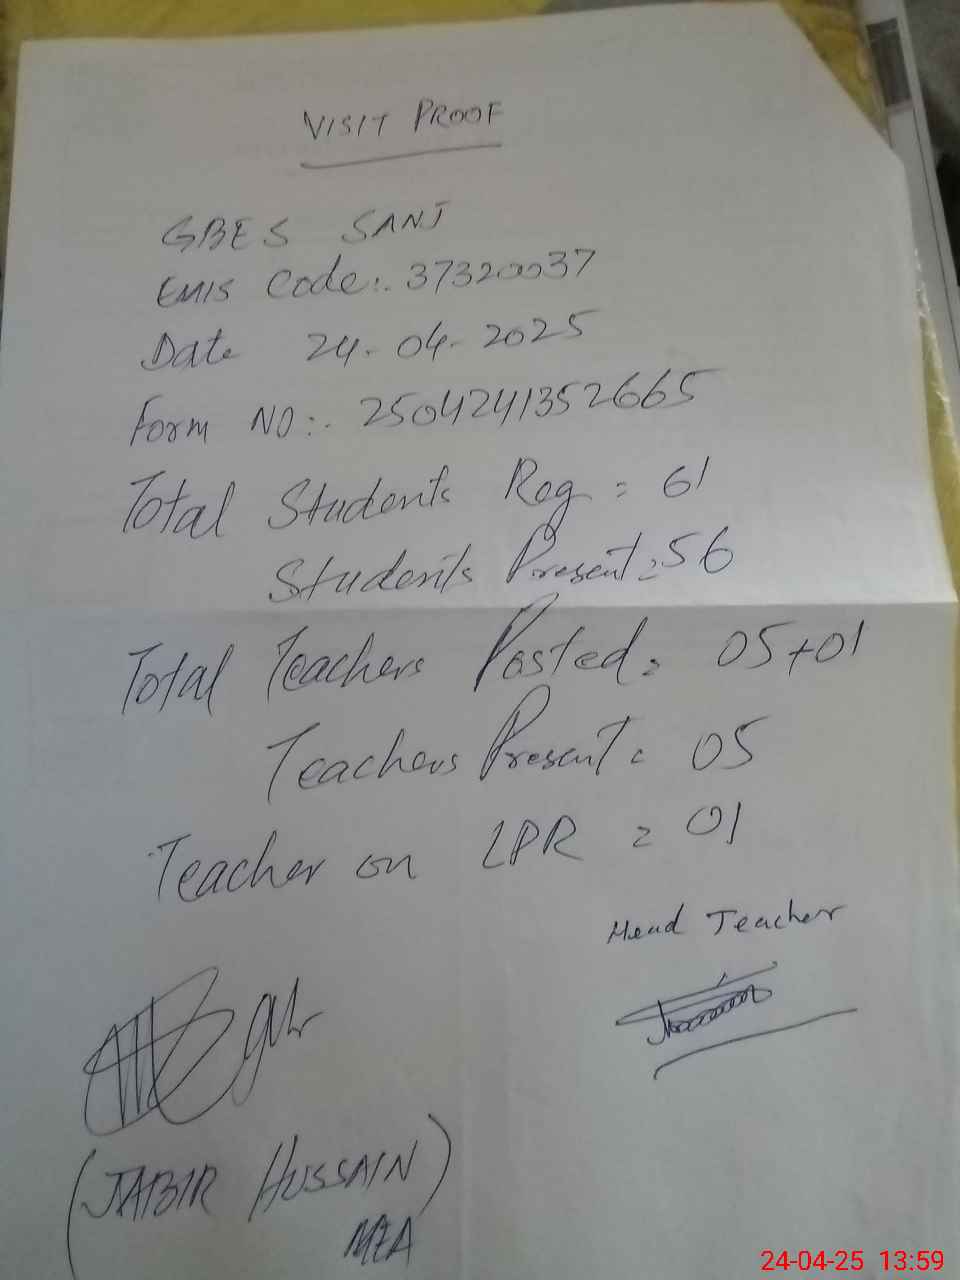 VISIT PROOF
GBES SANJ
EMIS Code:. 37320037
Date 24-04-2025
Form NO:. 2504241352665
Total Students Reg = 61
Students Present = 56
Total Teachers Posted = 05+01
Teachers Present = 05
Teacher on LPR = 01
Head Teacher
(JABIR HUSSAIN)
MEA
24-04-25 13:59